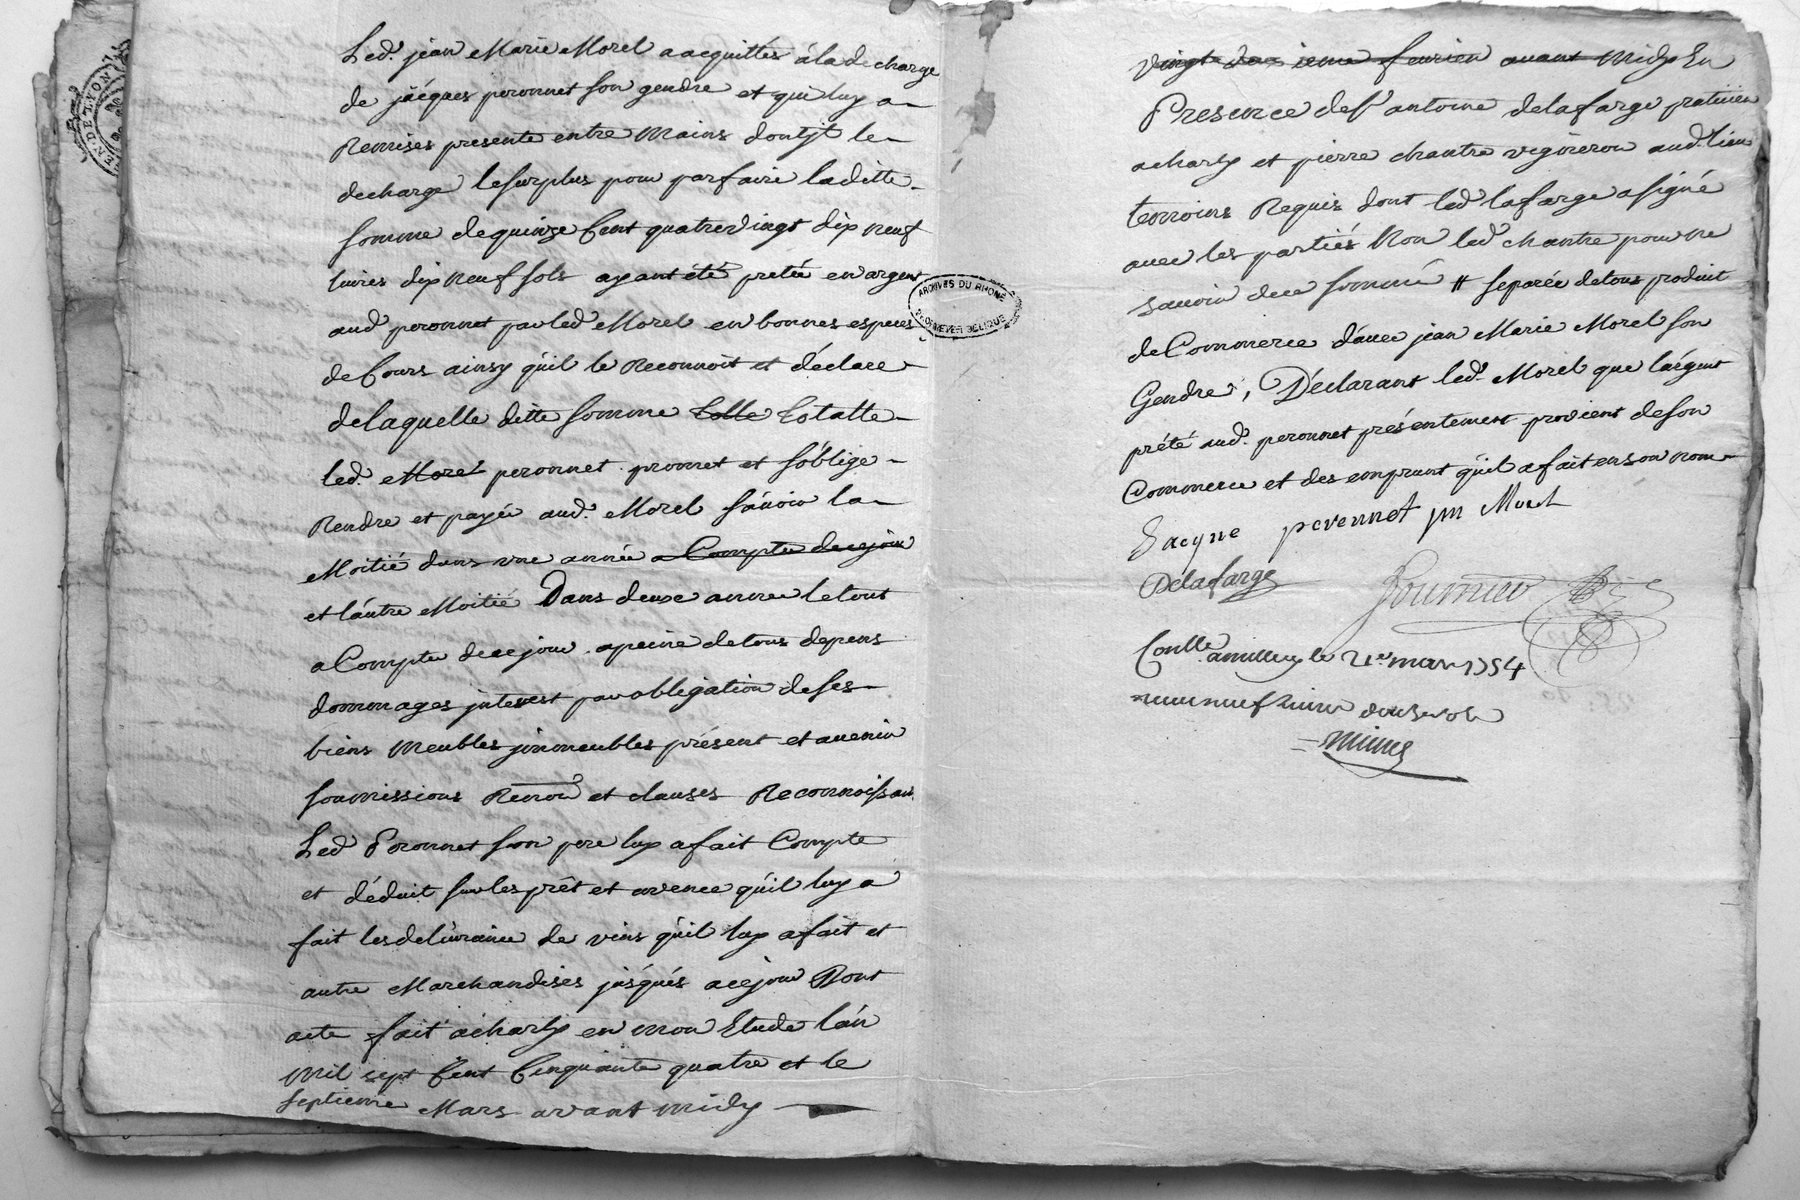 Led. jean Marie Morel a acquittés a la decharge
de jacques peronnet son gendre et qui luy a
Remises presente entre mains dont jl le
decharge le surplus pour parfaire laditte
somme de quinze Cent quatrevingt dix neuf
livres dix neuf sols ayant été pretée en argent
aud peronnet par led Morel en bonnes especes
de Cours ainsy qu'il le Reconnoit et déclare
de laquelle ditte somme tolle totalle
led. Morel peronnet promet et s'oblige
Rendre et payée aud. Morel sávoir la
Moitié dans une année a Compter de ce jour
et l'autre Moitié Dans deux année le tout
a Compter de ce jour a peine de tous depens
dommages jnterest par obligation de ses
biens Meubles jmmeubles présent et avenir
soumissions Renon et clauses Reconnoissant
Led Peronnet son pere luy a fait Compte
et déduit sur les prêt et avence qu'il luy a
fait les delivraince de vins qu'il luy a fait et
autre Marchandises jusqués a ce jour Dont
acte fait a charly en mon Etude l'an
Mil sept Cent Cinquante quatre et le
septieme Mars avant midy
vingt deux ieme fevrier avant Midy En
Presence de sr antoine delafarge praticien
a charly et pierre chantre vigneron aud. lieu
temoins Requis dont led lafarge a signé
avec les partiés Non led chantre pour ne
savoir de ce sommé # separée de tous produit
de Commerce d'avec jean Marie Morel son
Gendre, Déclarant led. Morel que l'argent
prété aud. peronnet présentement provient de son
Commerce et des emprunt qu'il a fait en son nom
Jacque peronnet jm Morel
Delafarge Fournier
Conlle a millery le 21e mars 1754
neuf livres douze sols
ARCHIVES DU RHONE